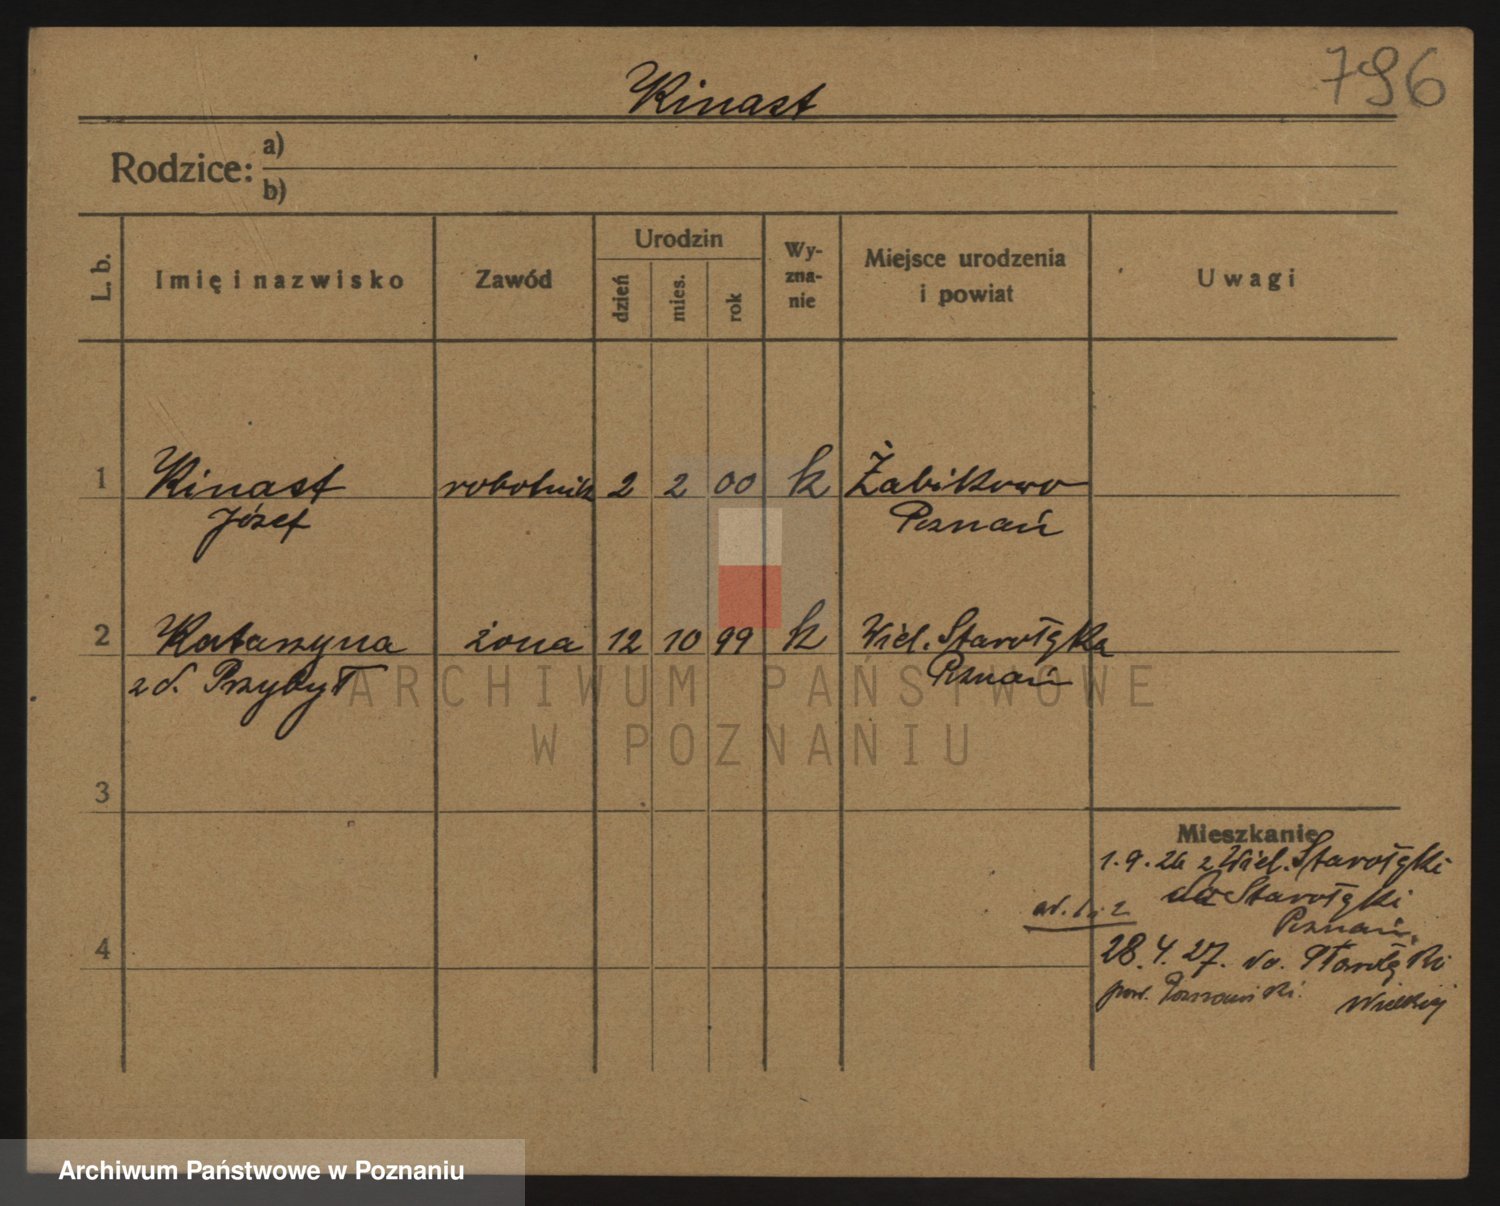 796
Kinast
Rodzice: a)
b)
L. b.
Imię i nazwisko
Zawód
Urodzin
dzień
mies.
rok
Wy-
zna-
nie
Miejsce urodzenia
i powiat
Uwagi
1 Kinast robotnik 2 2 00 k Żabikowo
Józef Poznań
2 Katarzyna żona 12 10 99 k Wiel. Starołęka
z d. Przybył Poznań
ARCHIWUM PAŃSTWOWE
W POZNANIU
3
Mieszkanie
1.9.26 z Wiel. Starołęki
Starołęki
ad. 1 i 2
Poznań.
4
28.4.27. do Starołęki
pow. Poznański. Wielkiej
Archiwum Państwowe w Poznaniu